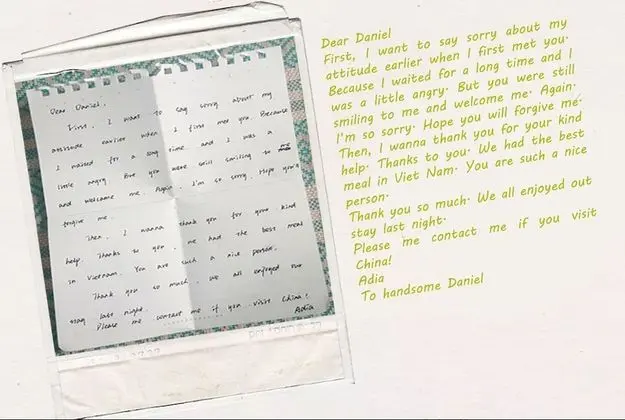 Dear Daniel,
First, I want to say sorry about my
attitude earlier when I first met you. Because
I waited for a long time and I was a
little angry. But you were still smiling to me
and welcome me. Again, I'm so sorry. Hope you'll
forgive me.
Then, I wanna thank you for your kind
help. Thanks to you, we had the best meal
in Vietnam. You are such a nice person.
Thank you so much. We all enjoyed our
stay last night.
Please me contact me if you visit China!
Adia
Dear Daniel
First, I want to say sorry about my
attitude earlier when I first met you.
Because I waited for a long time and I
was a little angry. But you were still
smiling to me and welcome me. Again.
I'm so sorry. Hope you will forgive me.
Then, I wanna thank you for your kind
help. Thanks to you. We had the best
meal in Viet Nam. You are such a nice
person.
Thank you so much. We all enjoyed out
stay last night.
Please me contact me if you visit
China!
Adia
To handsome Daniel